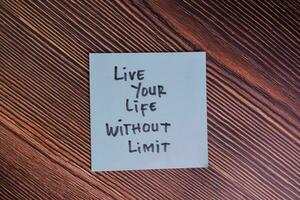 Live
Your
Life
Without
Limit